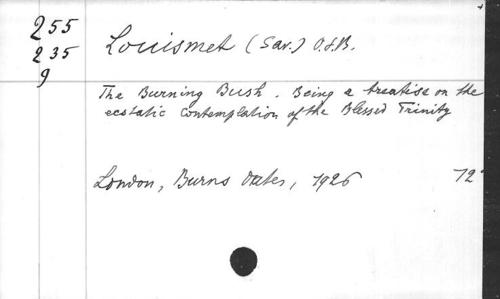 255
235
9
Louismet (Sav.) O.S.B.
The Burning Bush. Being a treatise on the
ecstatic contemplation of the Blessed Trinity
London, Burns Oates, 1926 12°